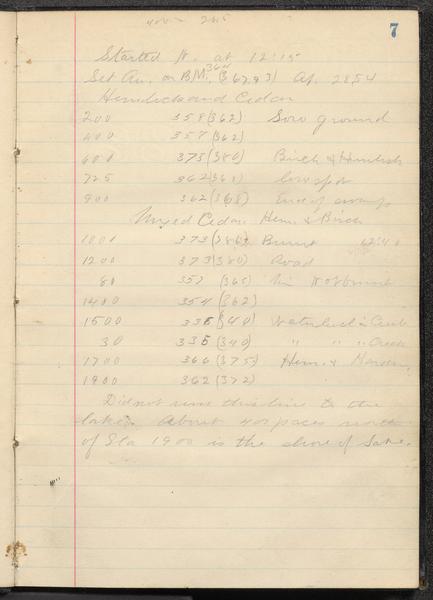 7
Started N. at 12:15
Set An. on B.M. 364 (3 67.93) Ap. 28.54
Hemlock and Cedar
200 358 (362) Low ground
400 357 (362)
600 375 (380) Birch & Hemlock
725 362 (368) low spot
900 362 (368) End of swamp
Mixed Cedar. Hem. & Birch
1000 373 (380) Burnt
1200 373 (380) Road
80 357 (365)
1400 354 (362)
1500 335 (340) Creek
30 335 (340) " " " Creek
1700 366 (375) Hem. &
1900 362 (372)
Did not run this line to the
lake. About 400 paces north
of Sta 1900 is the shore of Lake.